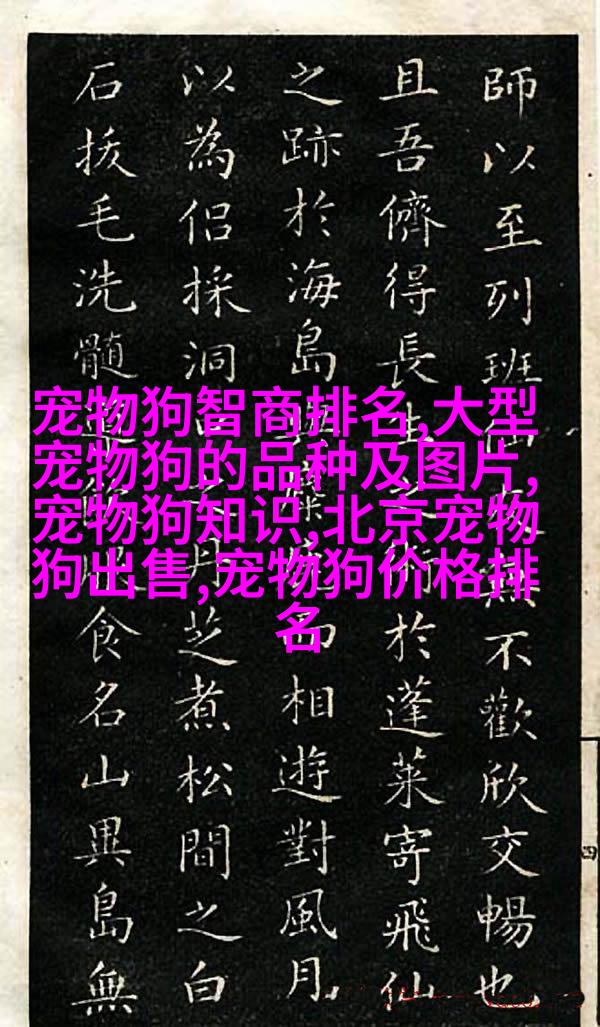 宠物狗智商排名,大型
宠物狗的品种及图片,
宠物狗知识,北京宠物
狗出售,宠物狗价格排
名
師以至列班仙無不歡欣交暢也
且吾儕得長生術於蓬萊寄飛仙
之跡於海島相遊對風月
以為侶採洞丹芝煮松間之白
石拔毛洗髓食名山異島無